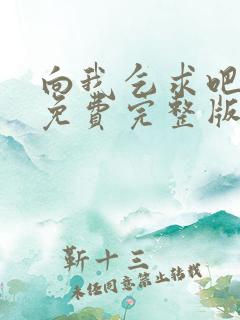 向我乞求吧
免費完整版
靳十三
未经同意禁止转载